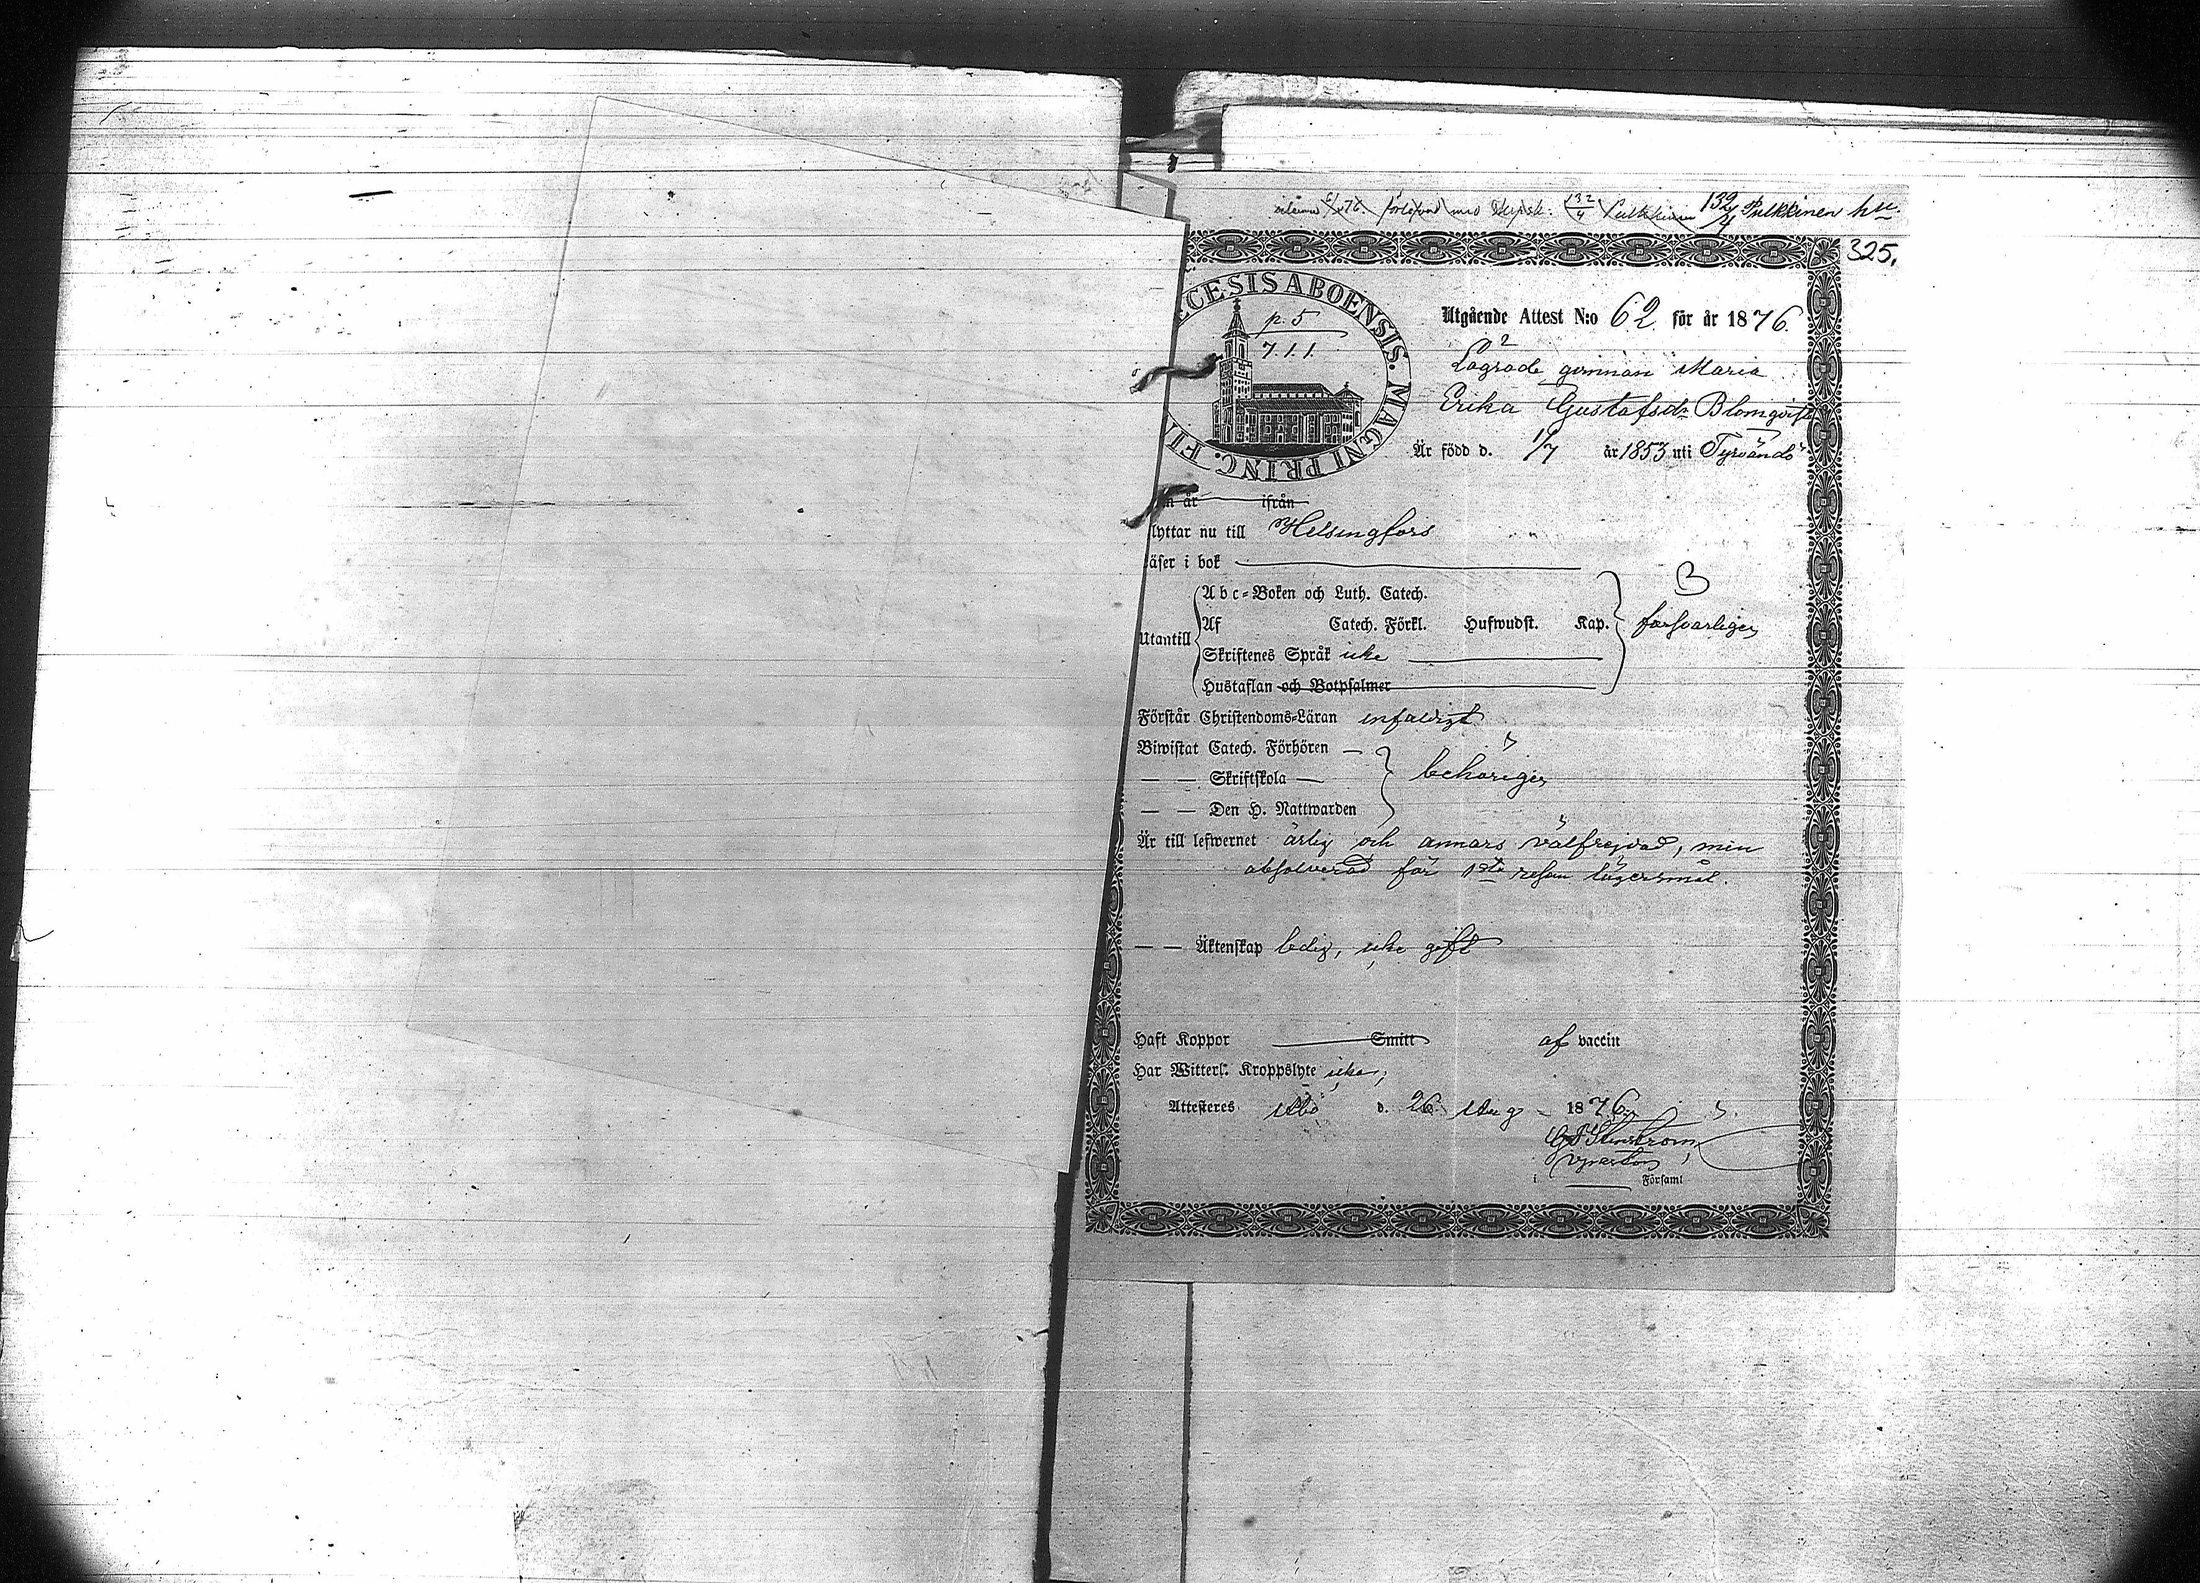 132/4 Pulkkinen hu.
325.
CESIS ABOENSIS. MAGNI PRINC. FI
p. 5
7.1.1.
Utgående Attest N:o 62 för år 1876.
qvinnan Maria
Erika Gustafsdr Blomqvist
Är född d. 1/7 år 1853 uti Tyrvändö
år ifrån
lyttar nu till Helsingfors
äser i bok
Abc-Boken och Luth. Catech.
B
Utantill
Af Catech. Förkl. Hufwudst. Kap.
försvarligen
Skriftenes Språk icke
Hustaflan och Botpsalmer
Förstår Christendoms-Läran enfaldigt
Biwistat Catech. Förhören —
— — Skriftskola —
behörigen
— — Den H. Nattwarden
Är till lefwernet ärlig och annars välfrejdad, men
absolverad för 1sta resan lägersmål.
— — Äktenskap ledig, icke gift
Haft Koppor Smitt af vaccin
Har Witterl. Kroppslyte icke,
Attesteres Åbo d. 26 Aug 1876
i Församl